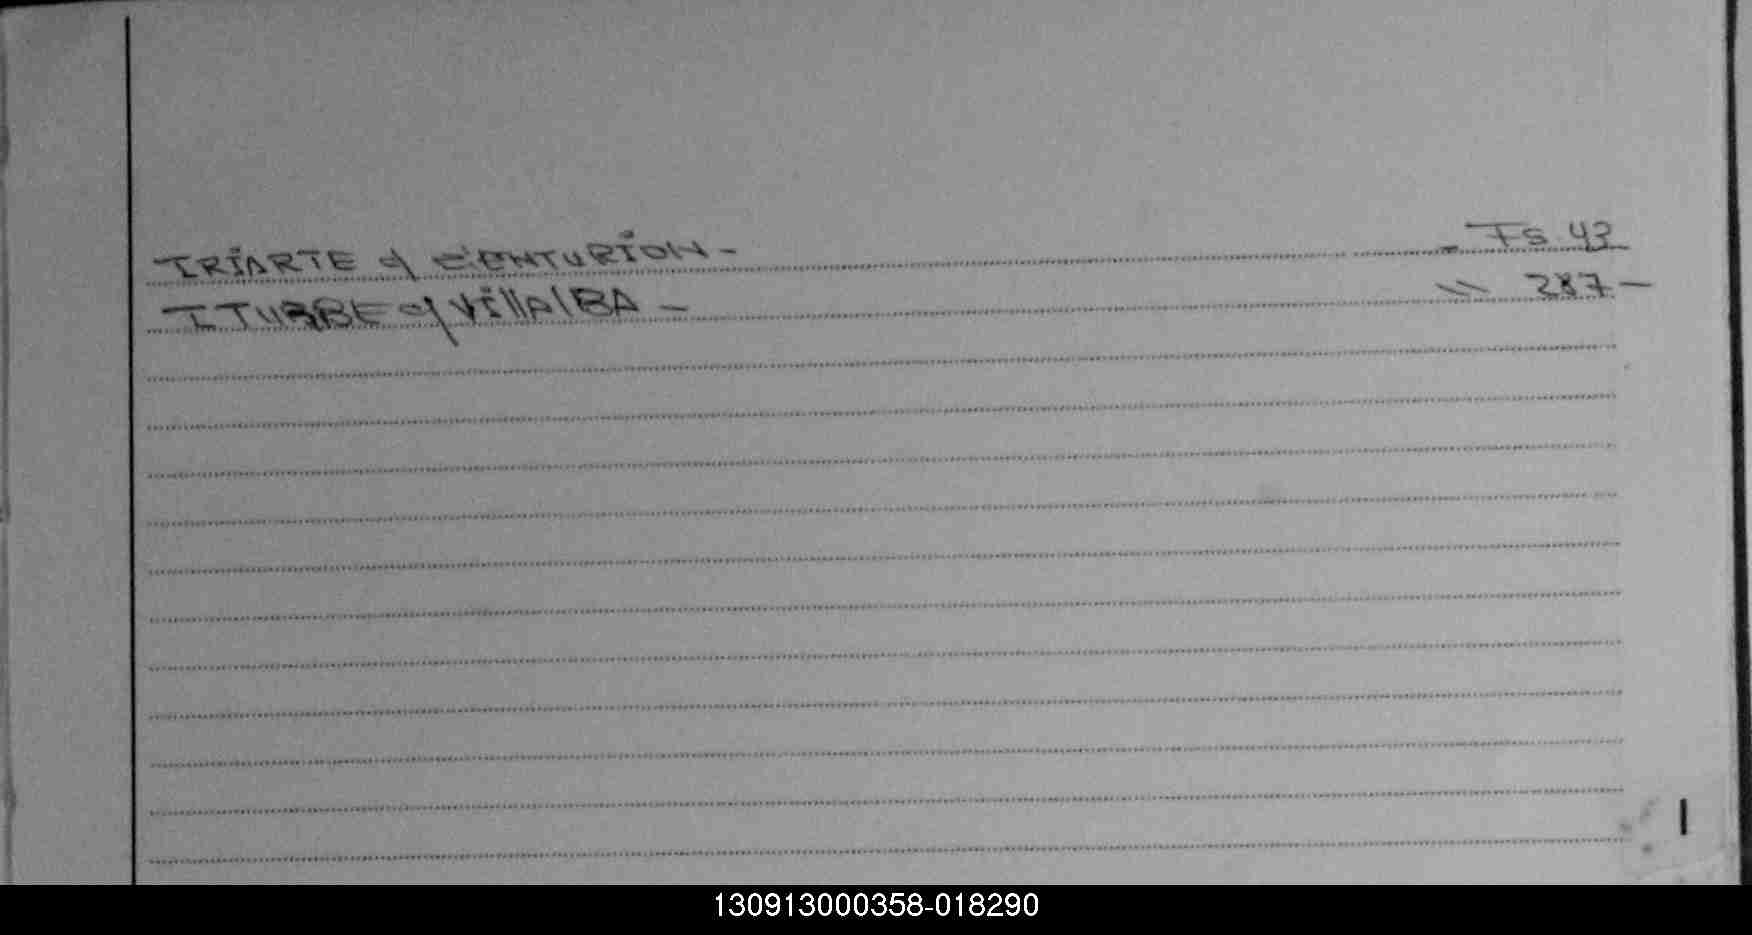 IRIARTE y CENTURION - - Fs. 43
ITURBE y VillAlBA - \\\ 287 -
I
130913000358-018290